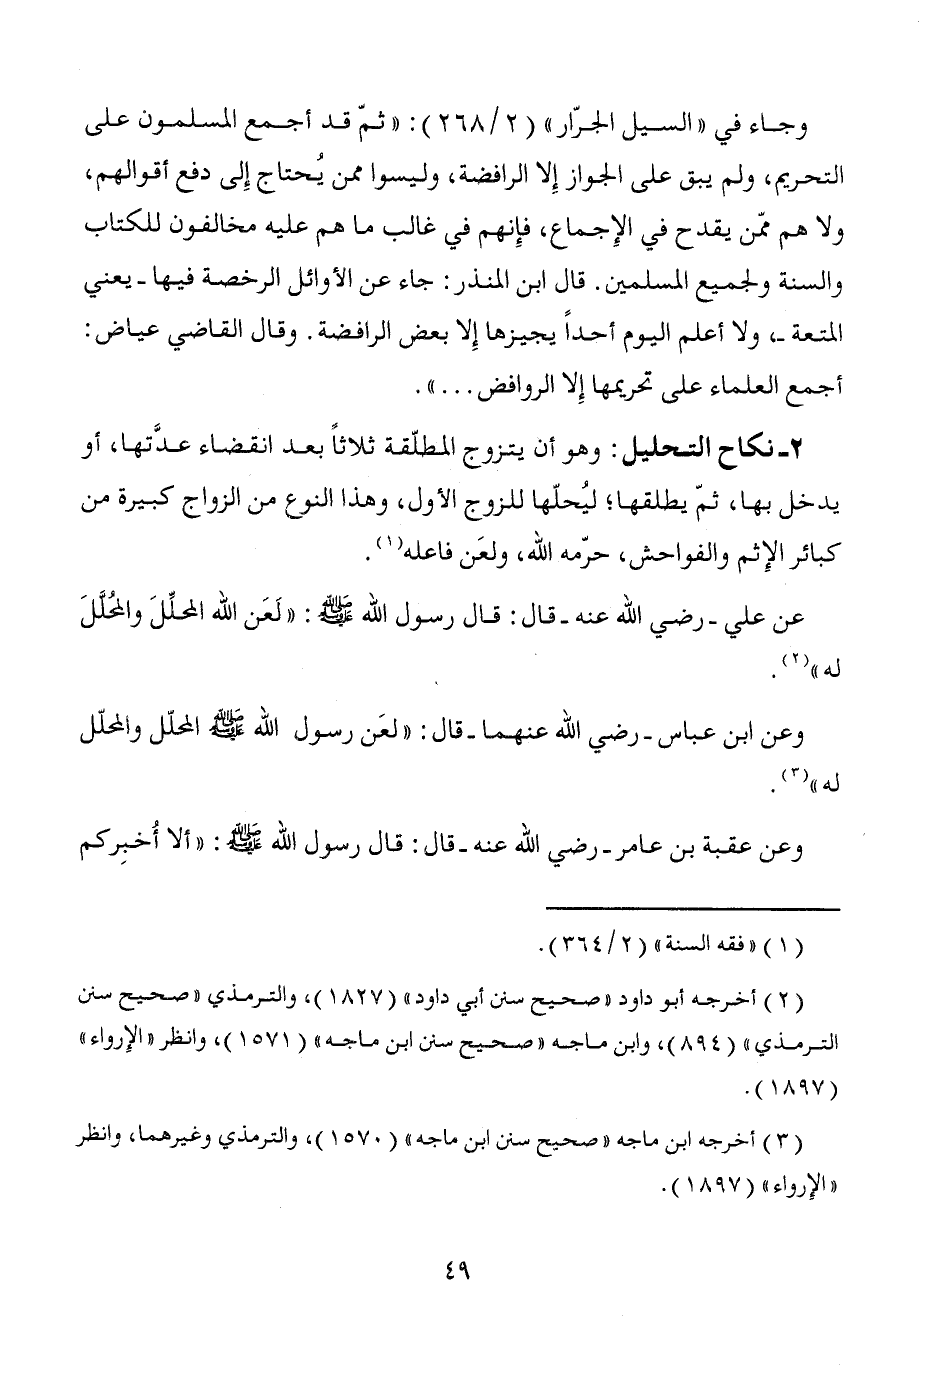 وجاء في «السيل الجرّار» (٢/ ٢٦٨): «ثمّ قد أجمع المسلمون على
التحريم، ولم يبق على الجواز إلا الرافضة، وليسوا ممن يُحتاج إلى دفع أقوالهم،
ولا هم ممّن يقدح في الإجماع، فإنهم في غالب ما هم عليه مخالفون للكتاب
والسنة ولجميع المسلمين. قال ابن المنذر: جاء عن الأوائل الرخصة فيها ـ يعني
المتعة ـ، ولا أعلم اليوم أحداً يجيزها إلا بعض الرافضة. وقال القاضي عياض:
أجمع العلماء على تحريمها إلا الروافض...».
٢ـ نكاح التحليل: وهو أن يتزوج المطلّقة ثلاثاً بعد انقضاء عدَّتها، أو
يدخل بها، ثمّ يطلقها؛ ليُحلّها للزوج الأول، وهذا النوع من الزواج كبيرة من
كبائر الإثم والفواحش، حرّمه الله، ولعَن فاعله(١).
عن علي ـ رضي الله عنه ـ قال: قال رسول الله ﷺ: «لَعَن الله المحلِّلَ والمُحَلَّلَ
له»(٢).
وعن ابن عباس ـ رضي الله عنهما ـ قال: «لعَن رسول الله ﷺ المحلّل والمحلّل
له»(٣).
وعن عقبة بن عامر ـ رضي الله عنه ـ قال: قال رسول الله ﷺ: «ألا أُخبِركم
(١) «فقه السنة» (٢/ ٣٦٤).
(٢) أخرجه أبو داود «صحيح سنن أبي داود» (١٨٢٧)، والترمذي «صحيح سنن
الترمذي» (٨٩٤)، وابن ماجه «صحيح سنن ابن ماجه» (١٥٧١)، وانظر «الإرواء»
(١٨٩٧).
(٣) أخرجه ابن ماجه «صحيح سنن ابن ماجه» (١٥٧٠)، والترمذي وغيرهما، وانظر
«الإرواء» (١٨٩٧).
٤٩